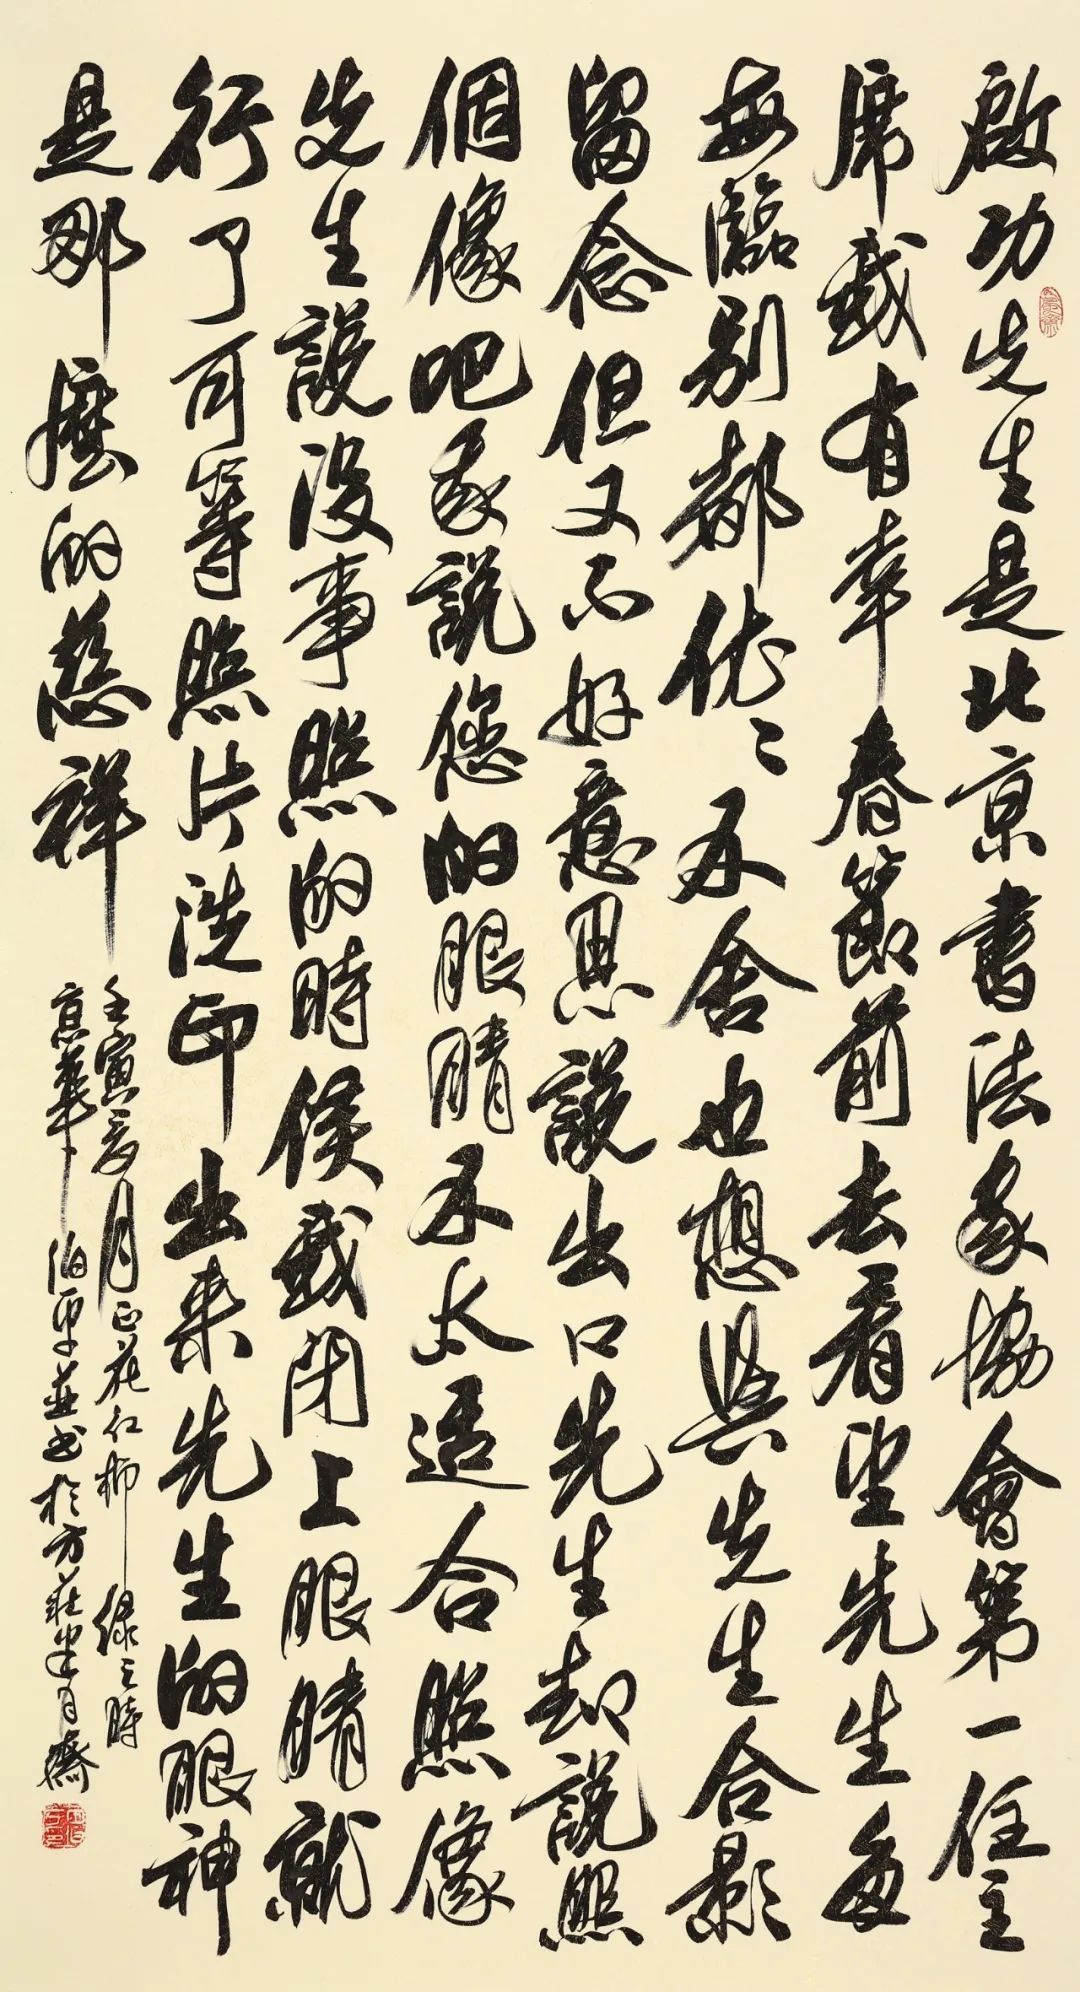 啟功先生是北京書法家協會第一任主
席我有幸春節前去看望先生每
每臨別都依〻不舍也想與先生合影
留念但又不好意思說出口先生却說照
個像吧我說您的眼睛不太適合照像
先生說没事照的時候我閉上眼睛就
行了可等照片洗印出来先生的眼神
是那麽的慈祥
壬寅夏月正花红柳绿之時
京華伯翔並书於方莊半月齋